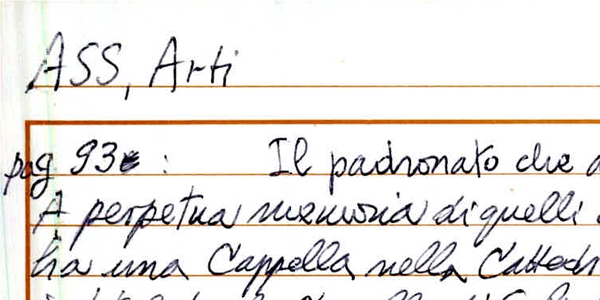 ASS, Arti
pag 93 : Il padronato che
A perpetua memoria di quelli
ha una Cappella nella Cattedr